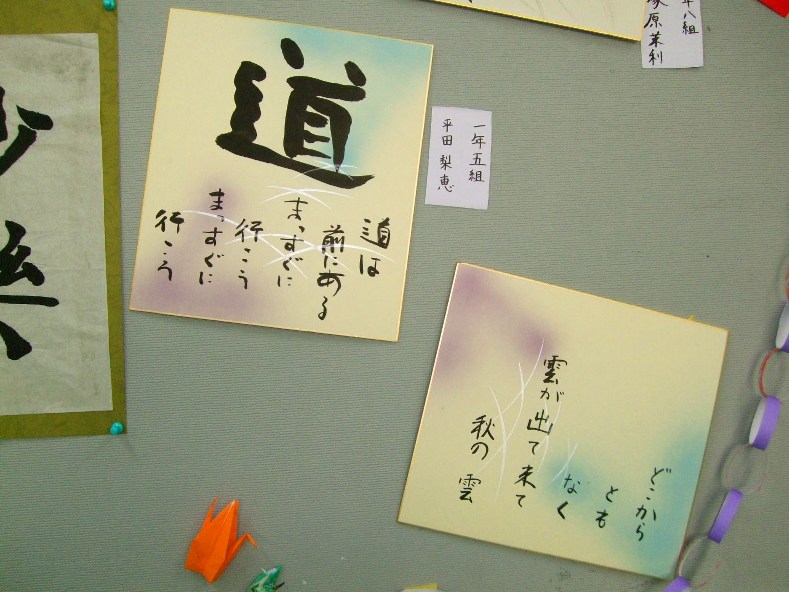 道
道は
前にある
まっすぐに
行こう
まっすぐに
行こう
一年五組
平田 梨恵
どこから
とも
なく
雲が出て来て
秋の雲
年八組
塚原茉利
楽